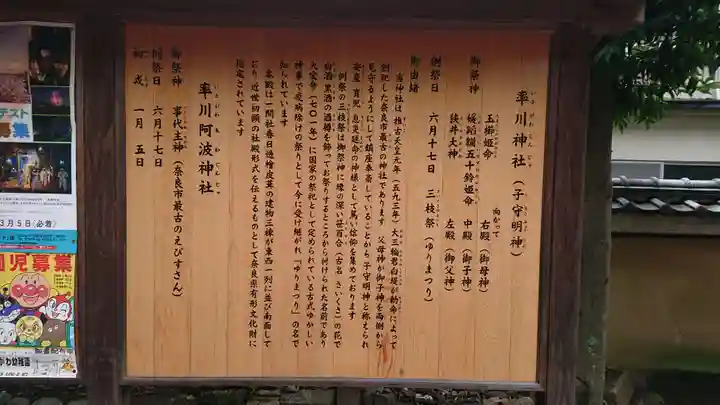 率川神社（子守明神）
いさがわじんじゃ
向かって
御祭神
玉櫛姫命　右殿（御母神）
媛蹈韛五十鈴姫命　中殿（御子神）
狭井大神　左殿（御父神）
例祭日　六月十七日　三枝祭（ゆりまつり）
御由緒
当神社は推古天皇元年（五九三年）大三輪君白堤が勅命によって
創祀した奈良市最古の神社であります　父母神が御子神を両側から
見守るようにして鎮座奉斎していることから子守明神と称えられ
安産 育児 息災延命の神様として篤い信仰を集めております
例祭の三枝祭は御祭神に縁の深い笹百合（古名 さいくさ）の花で
白酒 黒酒の酒樽を飾ってお祭りするところから付けられた名前であり
大宝令（七〇一年）に国家の祭祀として定められている古式ゆかしい
神事で疫病除けの祭りとして今に受け継がれ「ゆりまつり」の名で
知られています
本殿は一間社春日造檜皮葺の建物三棟が東西一列に並び南面して
おり 近世初頭の社殿形式を伝えるものとして奈良県有形文化財に
指定されています
率川阿波神社
いさがわあわじんじゃ
御祭神　事代主神（奈良市最古のえびすさん）
例祭日　六月十七日
初戎　一月五日
テスト
募集
3月5日(必着)
児募集
かわ幼稚園